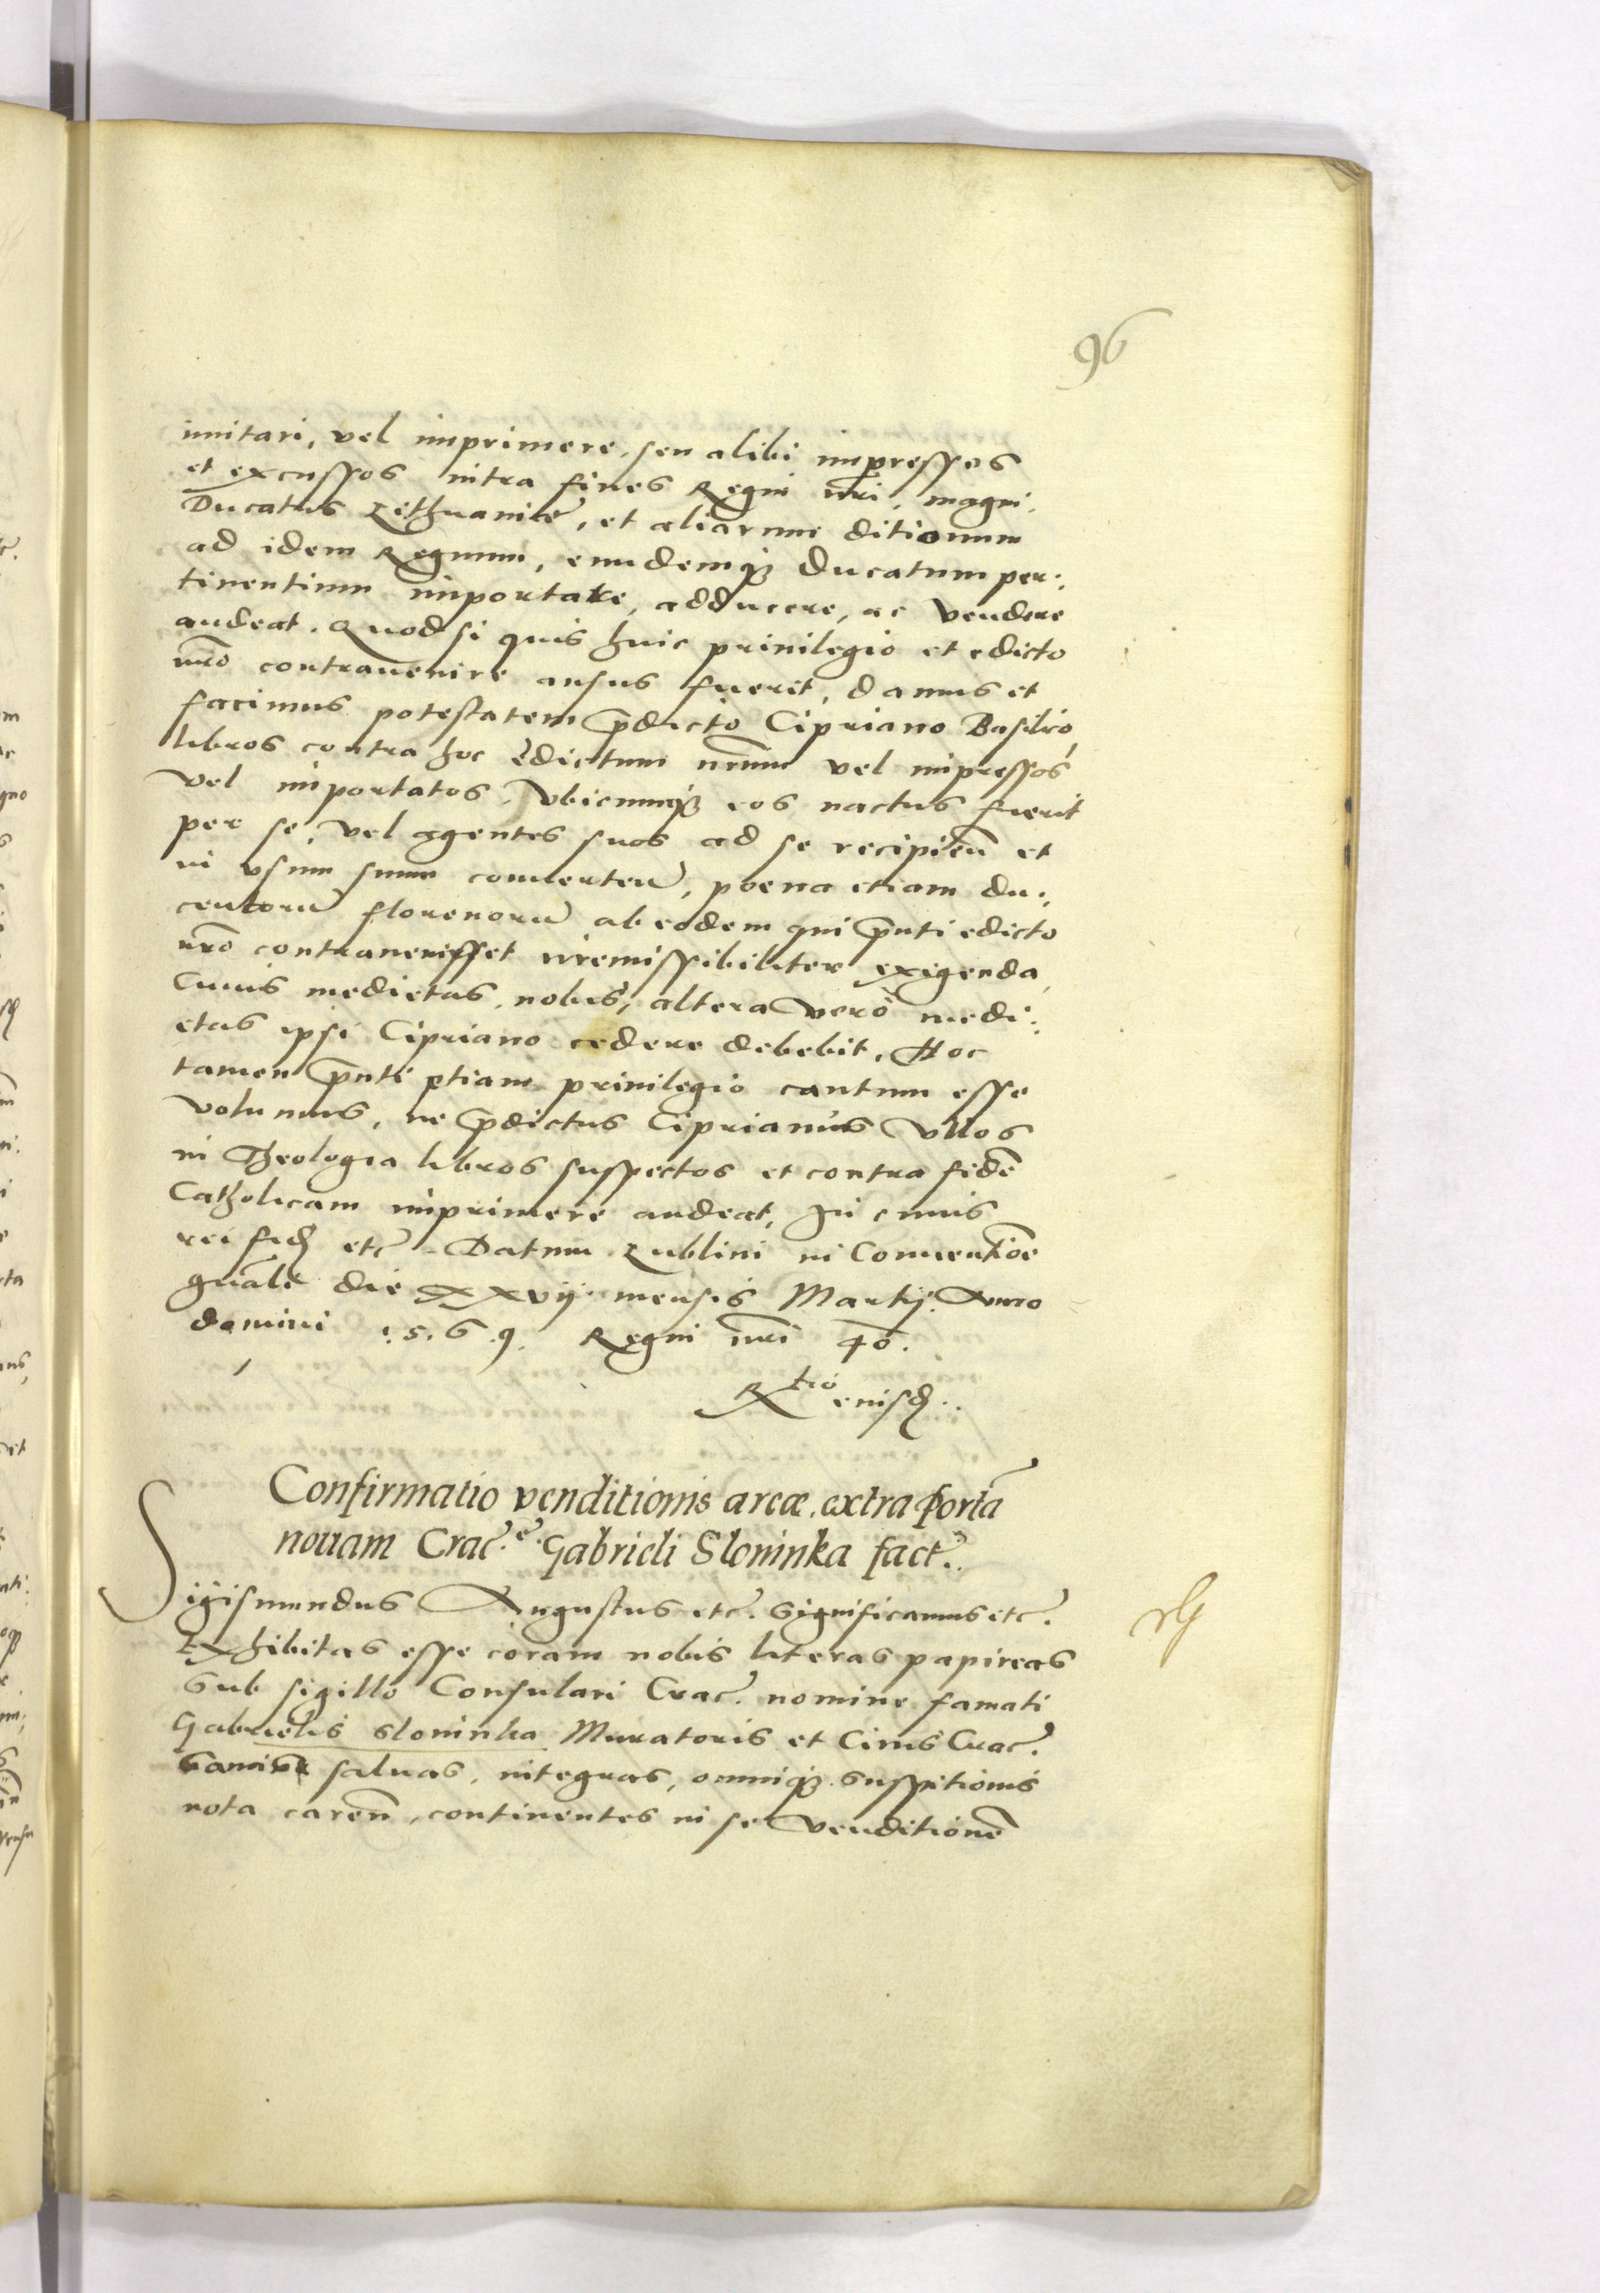 96
imitari, vel imprimere, seu alibi impressos
et excussos intra fines Regni nri, magni
Ducatus Lithuaniæ, et aliarum ditionum
ad idem Regnum, eundemq3 Ducatum per:
tinentium importare, adducere, ac vendere
audeat. Quod si quis huic priuilegio et edicto
nro contrauenire ausus fuerit, damus et
facimus potestatem pdicto Cipriano Basilico,
libros contra hoc edictum nrum vel impressos
vel importatos, vbicumq3 eos nactus fuerit
per se, vel agentes suos ad se recipien et
in vsum suum conuerten, poena etiam du:
centoru florenoru ab eodem qui pnti edicto
nro contrauenisset irremissibiliter exigenda,
Cuius medietas nobis, altera vero medi:
etas ipsi Cipriano cedere debebit, Hoc
tamen pnti etiam priuilegio cautum esse
volumus, ne pdictus Ciprianus vllos
in Theologia libros suspectos et contra fide
Catholicam imprimere audeat, In cuius
rei fid etc. Datum Lublini in Conuentione
gnali die XXVij mensis Martij. Anno
domini 1.5.6.9. Regni nri 40.
Rtio eiusd..
Confirmatio venditionis areæ extra Porta
nouam Crac.e Gabrieli Sloninka fact..
Sigismundus Augustus etc. Significamus etc.
Exhibitas esse coram nobis literas papireas
Sub sigillo Consulari Crac. nomine famati
Gabrielis Sloninka Muratoris et Ciuis Crac.
saluas, integras, omniq3 suspitionis
nota caren, continentes in se venditione